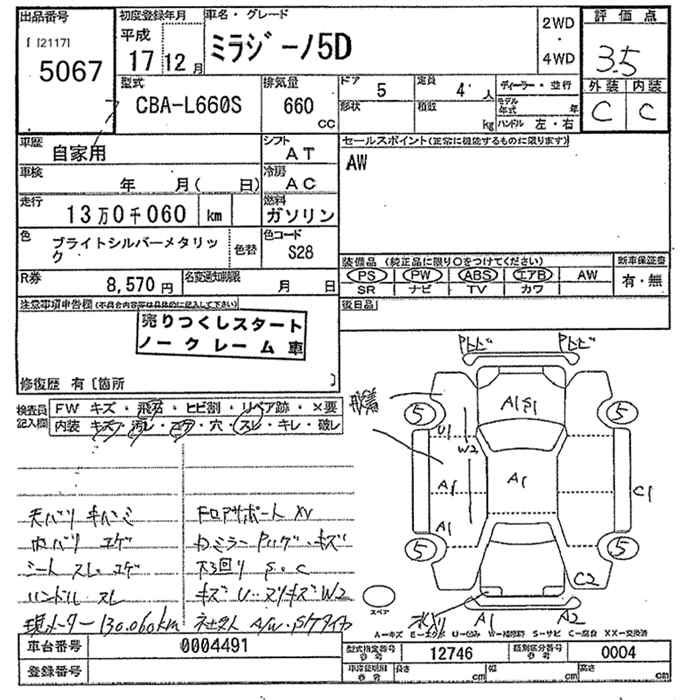 出品番号
[ [2117]
5067
初度登録年月
平成
17 12月
車名・グレード
ミラジーノ5D
2WD
・
4WD
評価点
3.5
外装 内装
C C
型式
CBA-L660S
排気量
660
CC
ドア
5
形状
定員
4 人
積数
kg
ディーラー・並行
モデル年式 年
ハンドル 左・右
車歴
自家用
シフト
AT
車検
年 月( 日)
冷房
AC
走行
13万0千060 km
燃料
ガソリン
色
ブライトシルバーメタリック
色替
色コード
S28
R券
8,570円
名変通知期限
月 日
セールスポイント(正常に機能するものに限ります)
AW
装備品 (純正品に限り○をつけてください)
PS PW ABS エアB AW
SR ナビ TV カワ
新車保証書
有・無
後日品
注意事項申告欄(不具合内容は具体的に記入して下さい)
売りつくしスタート
ノークレーム車
修復歴 有〔箇所 〕
検査員記入欄
FW キズ・飛石・ヒビ割・リペア跡・×要
内装 キズ・汚レ・コゲ・穴・スレ・キレ・破レ
天バリ キバミ
内バリ コゲ
シート スレ コゲ
ハンドル スレ
現メーター 130,060km
フロアサポート XV
S.C
キズ U W2
A/W
トビ
トビ
A1 S1
5
5
U1
W2
A1
A1
A1
C1
5
5
C2
A1
A2
スペア
A-キズ E-エクボ U-凹み W-補修跡 S-サビ C-腐食 XX-交換済
車台番号
0004491
登録番号
型式指定番号
12746
類別区分番号
0004
車庫証明用
長さ cm
幅 cm
高さ cm